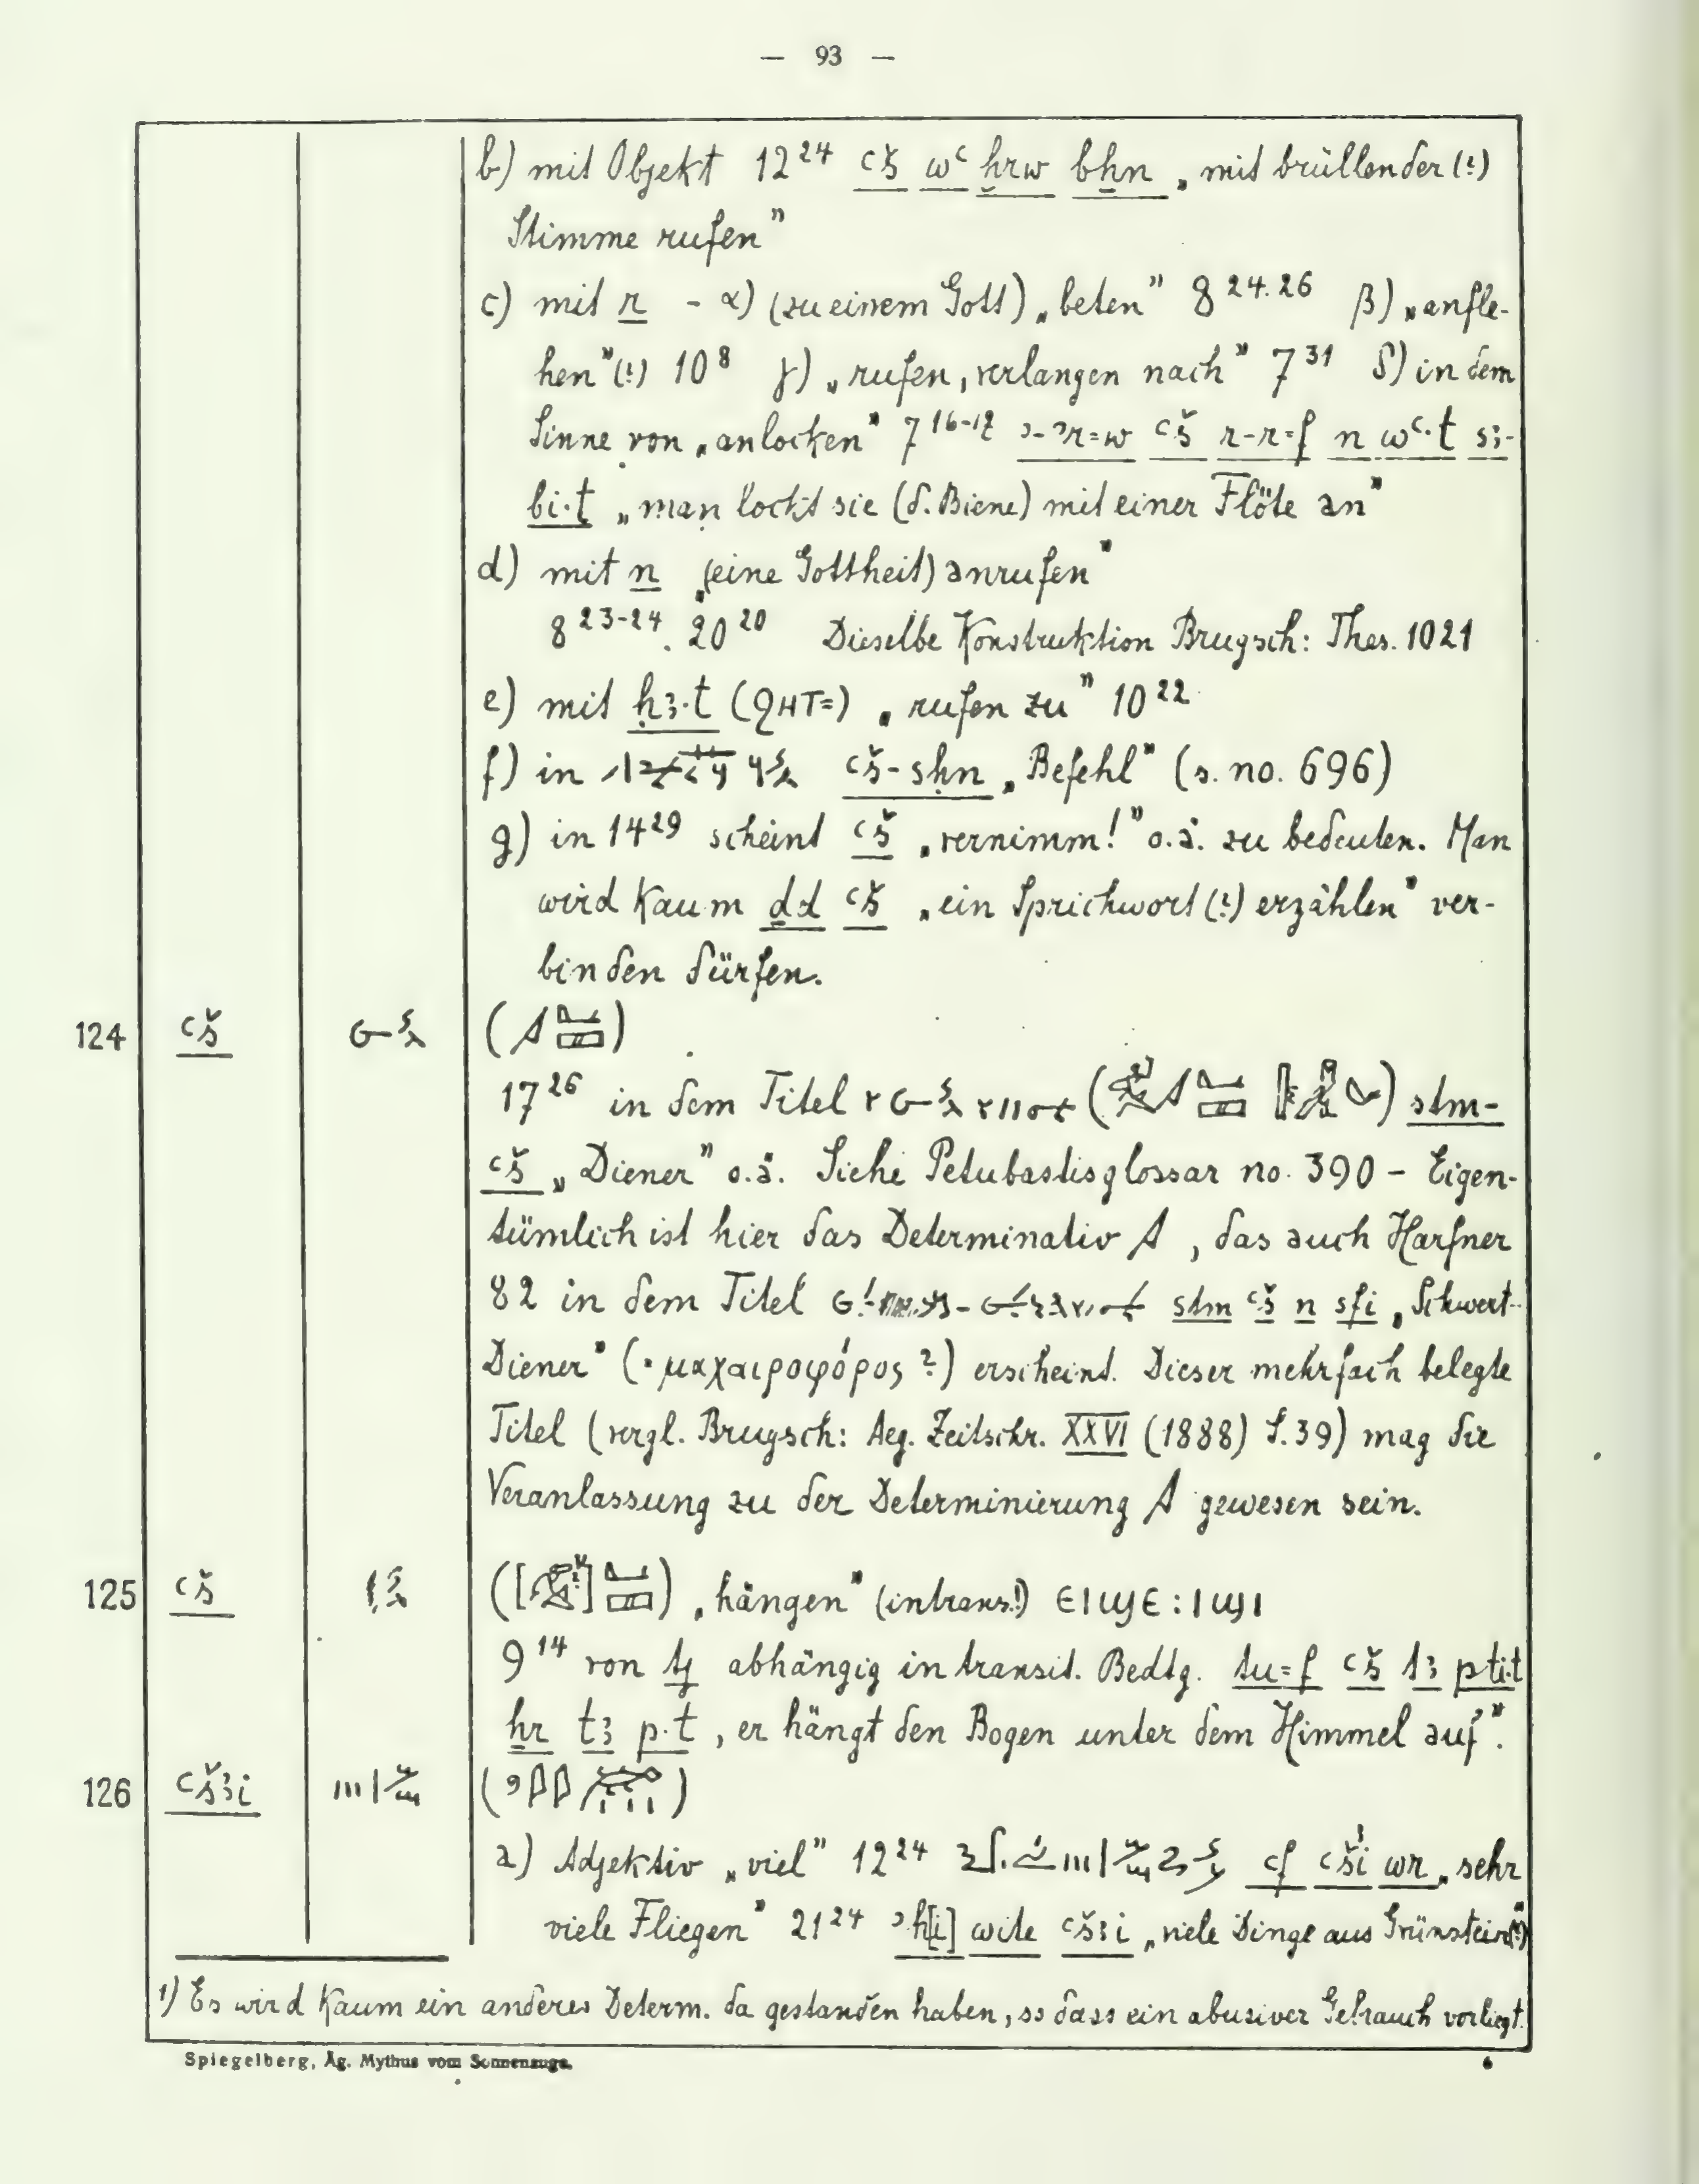 — 93 —
b) mit Objekt 12²⁴ ꜥš wꜥ ḫrw bhn „mit brüllender (?)
Stimme rufen”
c) mit r - α) (zu einem Gott) „beten” 8²⁴·²⁶ β) „anfle-
hen” (?) 10⁸ γ) „rufen, verlangen nach” 7³¹ δ) in dem
Sinne von „anlocken” 7¹⁶⁻¹⁷ ꜥš r-r=f n wꜥ·t sꜣ-
bi·t „man lockt sie (d. Biene) mit einer Flöte an”
d) mit n „(eine Gottheit) anrufen”
8²³⁻²⁴. 20²⁰ Dieselbe Konstruktion Brugsch: Thes. 1021
e) mit ḥꜣ·t (ϩⲏⲧ=) „rufen zu” 10²²
f) in ꜥš-sḥn „Befehl” (s. no. 696)
g) in 14²⁹ scheint ꜥš „vernimm!” o.ä. zu bedeuten. Man
wird kaum ḏd ꜥš „ein Sprichwort (?) erzählen” ver-
binden dürfen.
124 ꜥš
17²⁶ in dem Titel stm-
ꜥš „Diener” o.ä. Siehe Petubastisglossar no. 390 – Eigen-
tümlich ist hier das Determinativ , das auch Harfner
82 in dem Titel stm ꜥš n sfi „Schwert-
Diener” (· μαχαιροφόρος ?) erscheint. Dieser mehrfach belegte
Titel (vergl. Brugsch: Aeg. Zeitschr. XXVI (1888) S. 39) mag die
Veranlassung zu der Determinierung gewesen sein.
125 ꜥš „hängen” (intrans.!) ⲉⲓϣⲉ : ⲓϣⲓ
9¹⁴ von abhängig in transit. Bedtg. tu=f ꜥš tꜣ pti·t
ẖr tꜣ p·t „er hängt den Bogen unter dem Himmel auf”.
126 ꜥšꜣi
a) Adjektiv „viel” 12²⁴ ꜥf ꜥši wr „sehr
viele Fliegen” 21²⁴ wite ꜥšꜣi „viele Dinge aus Grünstein(?)”
1) Es wird kaum ein anderes Determ. da gestanden haben, so dass ein abusiver Gebrauch vorliegt.
Spiegelberg, Äg. Mythus vom Sonnenauge.
6